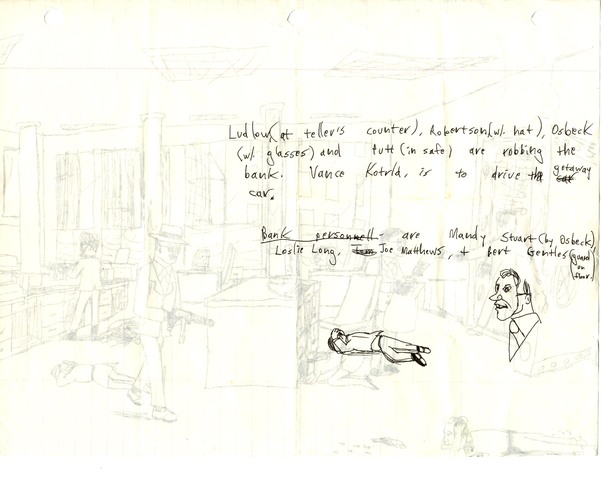 Ludlow (at teller's counter), Robertson (w/. hat), Osbeck
(w/. glasses) and tutt (in safe) are robbing the
bank. Vance Kotrla, is to drive the getaway
car.
Bank personnell- are Mandy Stuart (by Osbeck)
Leslie Long, Joe Matthews, + Bert Gentles (guard
on
floor.)